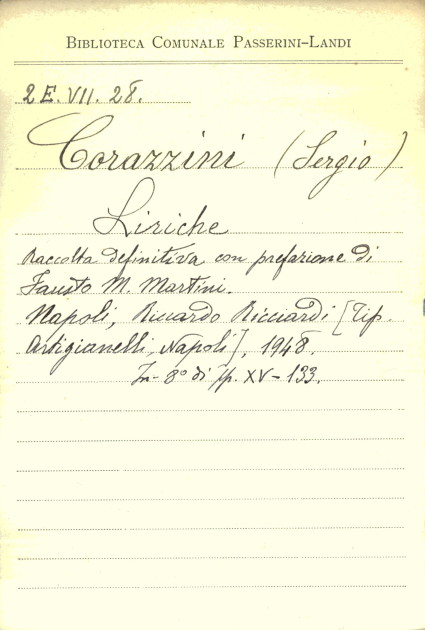 BIBLIOTECA COMUNALE PASSERINI-LANDI
2 E. VII. 28.
Corazzini (Sergio)
Liriche
Raccolta definitiva con prefazione di
Fausto M. Martini.
Napoli, Riccardo Ricciardi [Tip.
Artigianelli, Napoli], 1948.
In-8° di pp. XV-133.